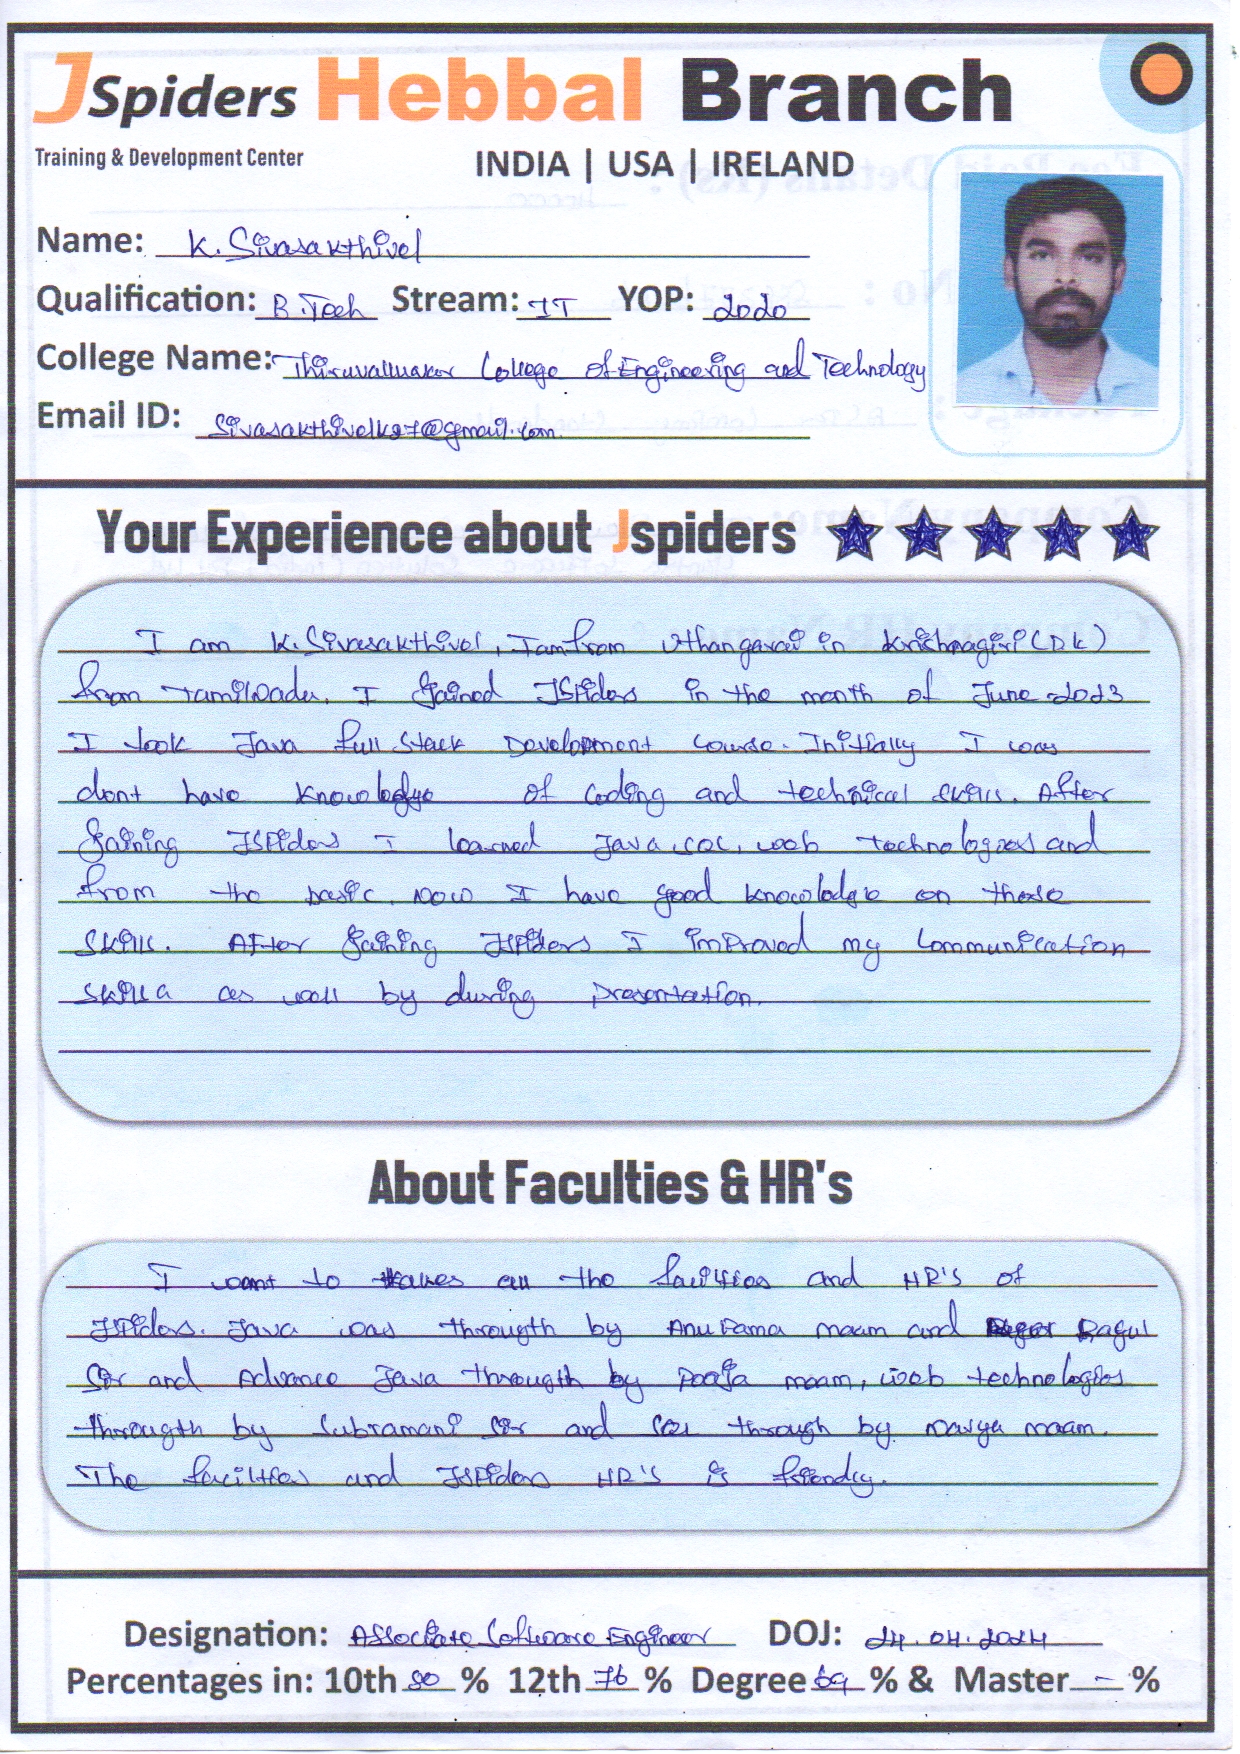 JSpiders Hebbal Branch
Training & Development Center
INDIA | USA | IRELAND
Name: K. Sivasakthivel
Qualification: B.Tech Stream: IT YOP: 2020
College Name: Thiruvalluvar College of Engineering and Technology
Email ID: Sivasakthivelk27@gmail.com.
Your Experience about Jspiders
I am K. Sivasakthivel, I am from Uthangarai in Krishnagiri (DK)
from TamilNadu. I Jained JSPiders in the month of June 2023
I took Java full Stack Development Course. Initially I was
dont have knowledge of Coding and technical skills. After
Jaining JSPiders I learned Java, SQL, web technologies and
from the basic. Now I have good knowledge on these
Skills. After Jaining JSPiders I improved my Communication
skills as well by during presentation.
About Faculties & HR's
I want to all the facilities and HR's of
JSPiders. Java was througth by AnuRama maam and Ragul
Sir and Advance Java througth by Pooja maam, web technologies
througth by Subramani Sir and SQL through by Navya maam.
The facilities and JSPiders HR's is friendly.
Designation: Associate Software Engineer DOJ: 24.04.2024
Percentages in: 10th 80 % 12th 76 % Degree 69 % & Master - %